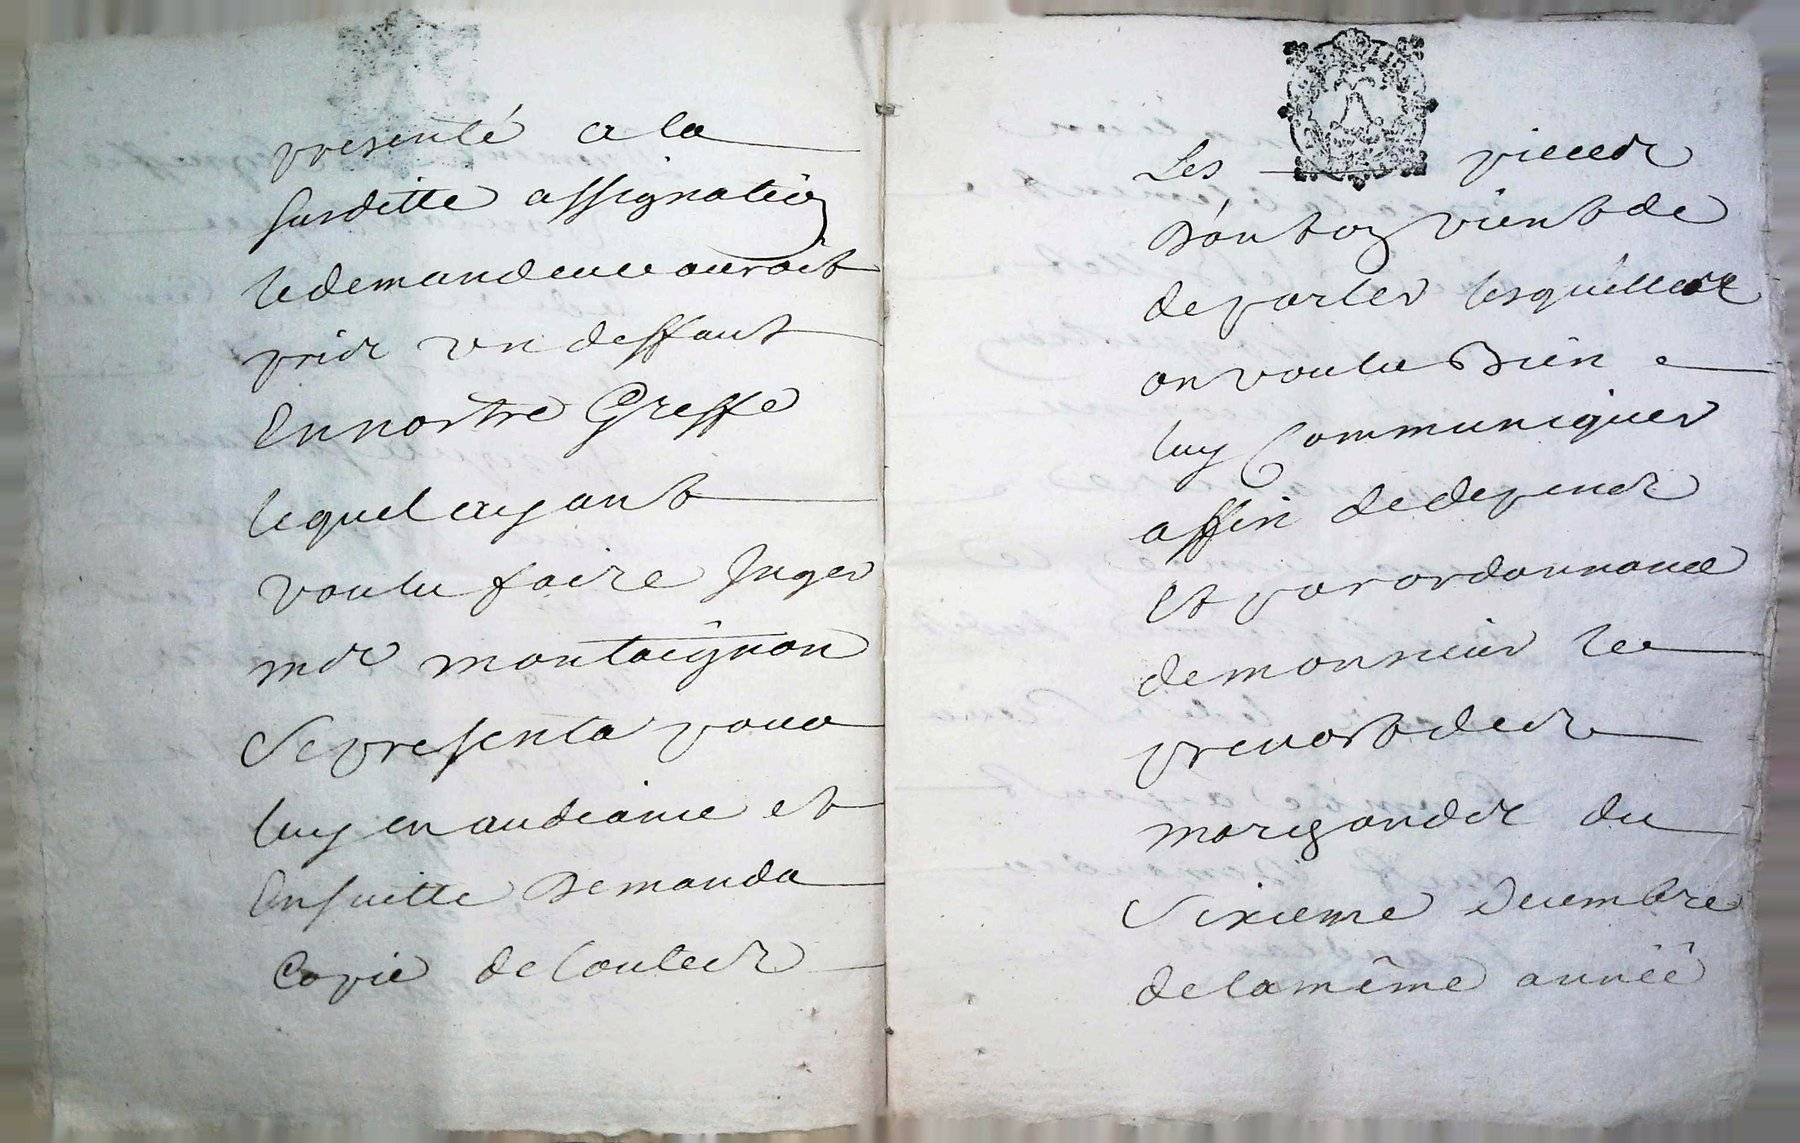 presenté a la
susditte assignation
le demandeur auroit
pris un deffaut
En nostre Greffe
lequel ayant
voulu faire Juger
me montaignon
Se presenta pour
luy en audiance et
Ensuitte Demanda
Copie de toutes
Les pieces
Dont on vient de
de parler lesquelles
on voulu Bien
luy Communiquer
affin de depens
Et par ordonnance
de monsieur le
prevost des
marchands du
Sixieme Decembre
de la même année